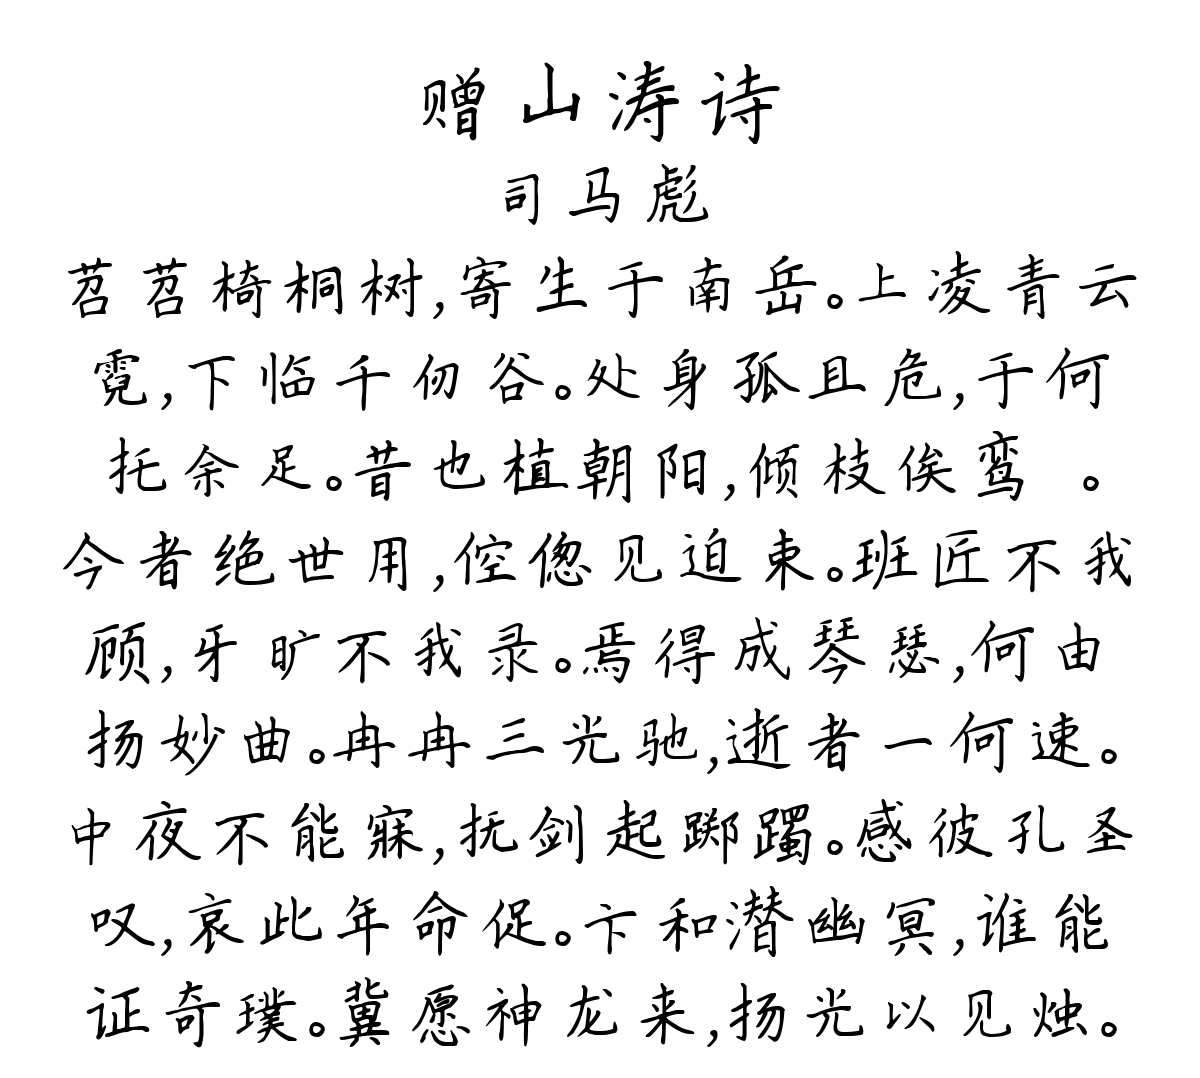 赠山涛诗
司马彪
苕苕椅桐树,寄生于南岳。上凌青云
霓,下临千仞谷。处身孤且危,于何
托余足。昔也植朝阳,倾枝俟鸾 。
今者绝世用,倥偬见迫束。班匠不我
顾,牙旷不我录。焉得成琴瑟,何由
扬妙曲。冉冉三光驰,逝者一何速。
中夜不能寐,抚剑起踯躅。感彼孔圣
叹,哀此年命促。卞和潜幽冥,谁能
证奇璞。冀愿神龙来,扬光以见烛。